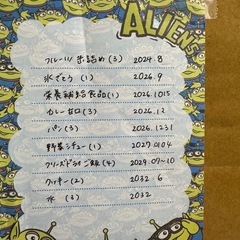 ALIENS
フルーツ缶詰め(3) 2024.8
氷ざとう(1) 2026.9
栄養補給食品(1) 2026.1015
カレー甘口(3) 2026.12
パン(3) 2026.1231
野菜シチュー(1) 2027.0104
フリーズドライご飯(4) 2029.07-10
クッキー(2) 2032.6
水(3) 2032